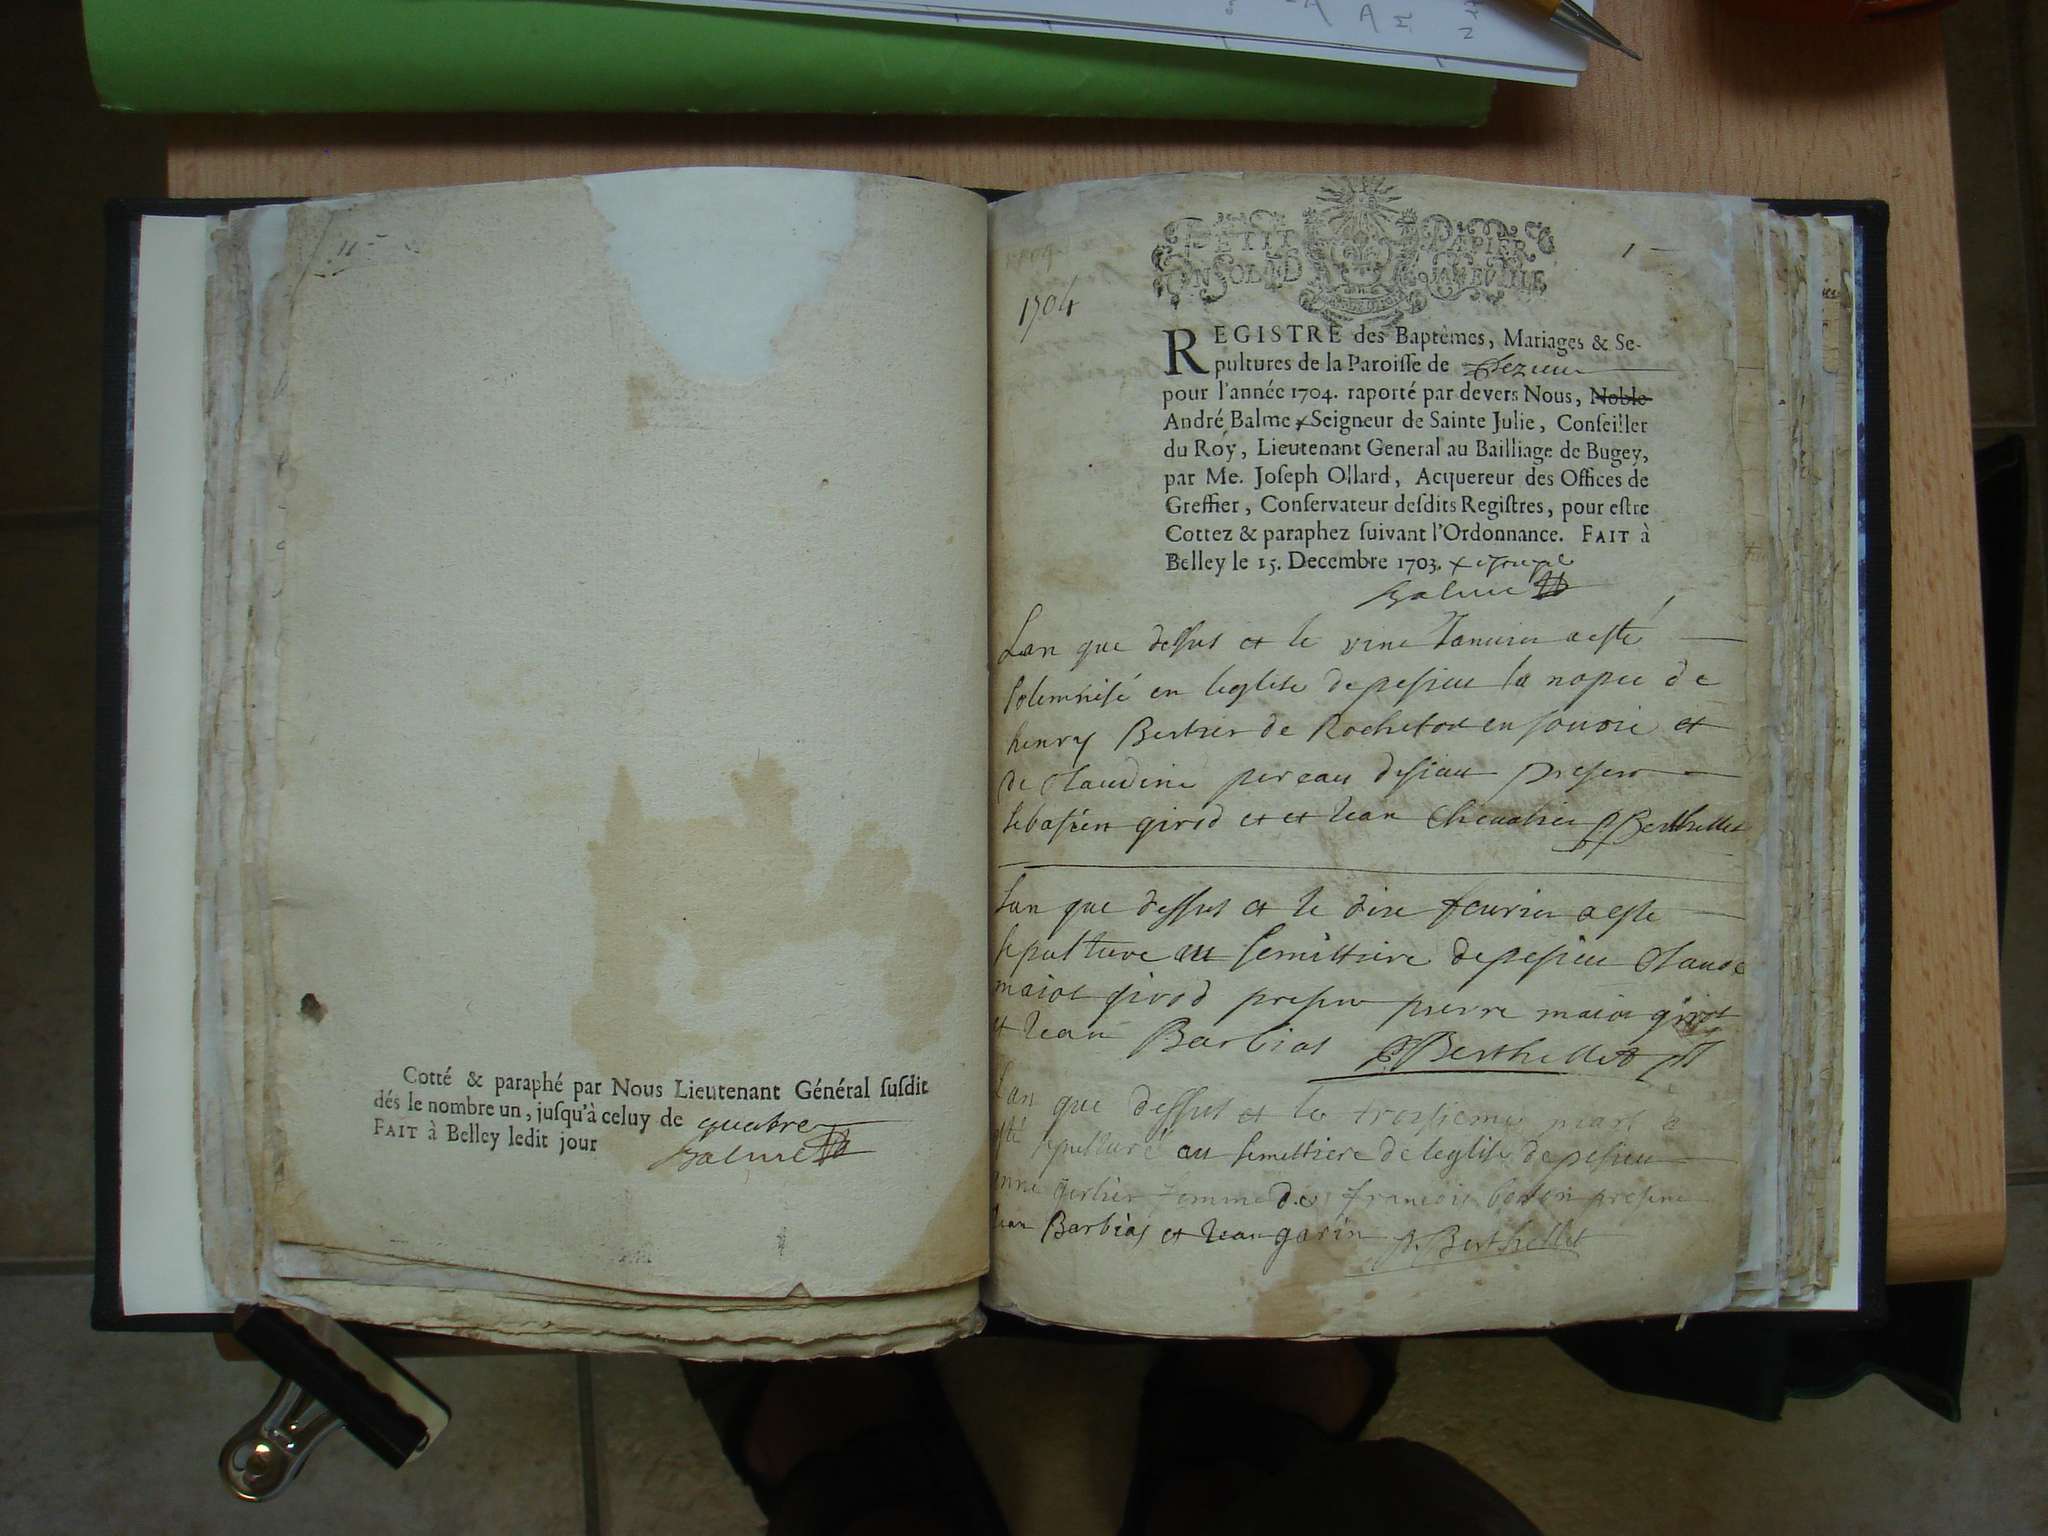 Cotté & paraphé par Nous Lieutenant Général ſuſdit
dés le nombre un, juſqu'à celuy de quatre
FAIT à Belley ledit jour
Balme
PETIT PAPIER
1
1704
REGISTRE des Baptêmes, Mariages & Se-
pultures de la Paroiſſe de
pour l'année 1704. raporté par devers Nous, Noble
André Balme Seigneur de Sainte Julie, Conſeiller
du Roy, Lieutenant General au Bailliage de Bugey,
par Me. Joſeph Ollard, Acquereur des Offices de
Greffier, Conſervateur deſdits Regiſtres, pour eſtre
Cottez & paraphez ſuivant l'Ordonnance. FAIT à
Belley le 15. Decembre 1703.
Balme
Lan que deſſus et le Ianuier a esté
solemnisé en leglise de pesieu la nopce de
henry Bertier de Rocheton en sauoie et
de Claudine present
sebastien girod et et Iean Cheualier Berthellet
Lan que deſſus et le dixe feurier a este
sepulture au semittiere de pesieu Claude
maiot girod present pierre maiot girod
et Iean Barbias Berthellet
Lan que deſſus et le troisieme mars a
esté sepulturé au semittiere de leglise de pesieu
anne femme de francois present
Iean Barbias et Iean garin Berthellet